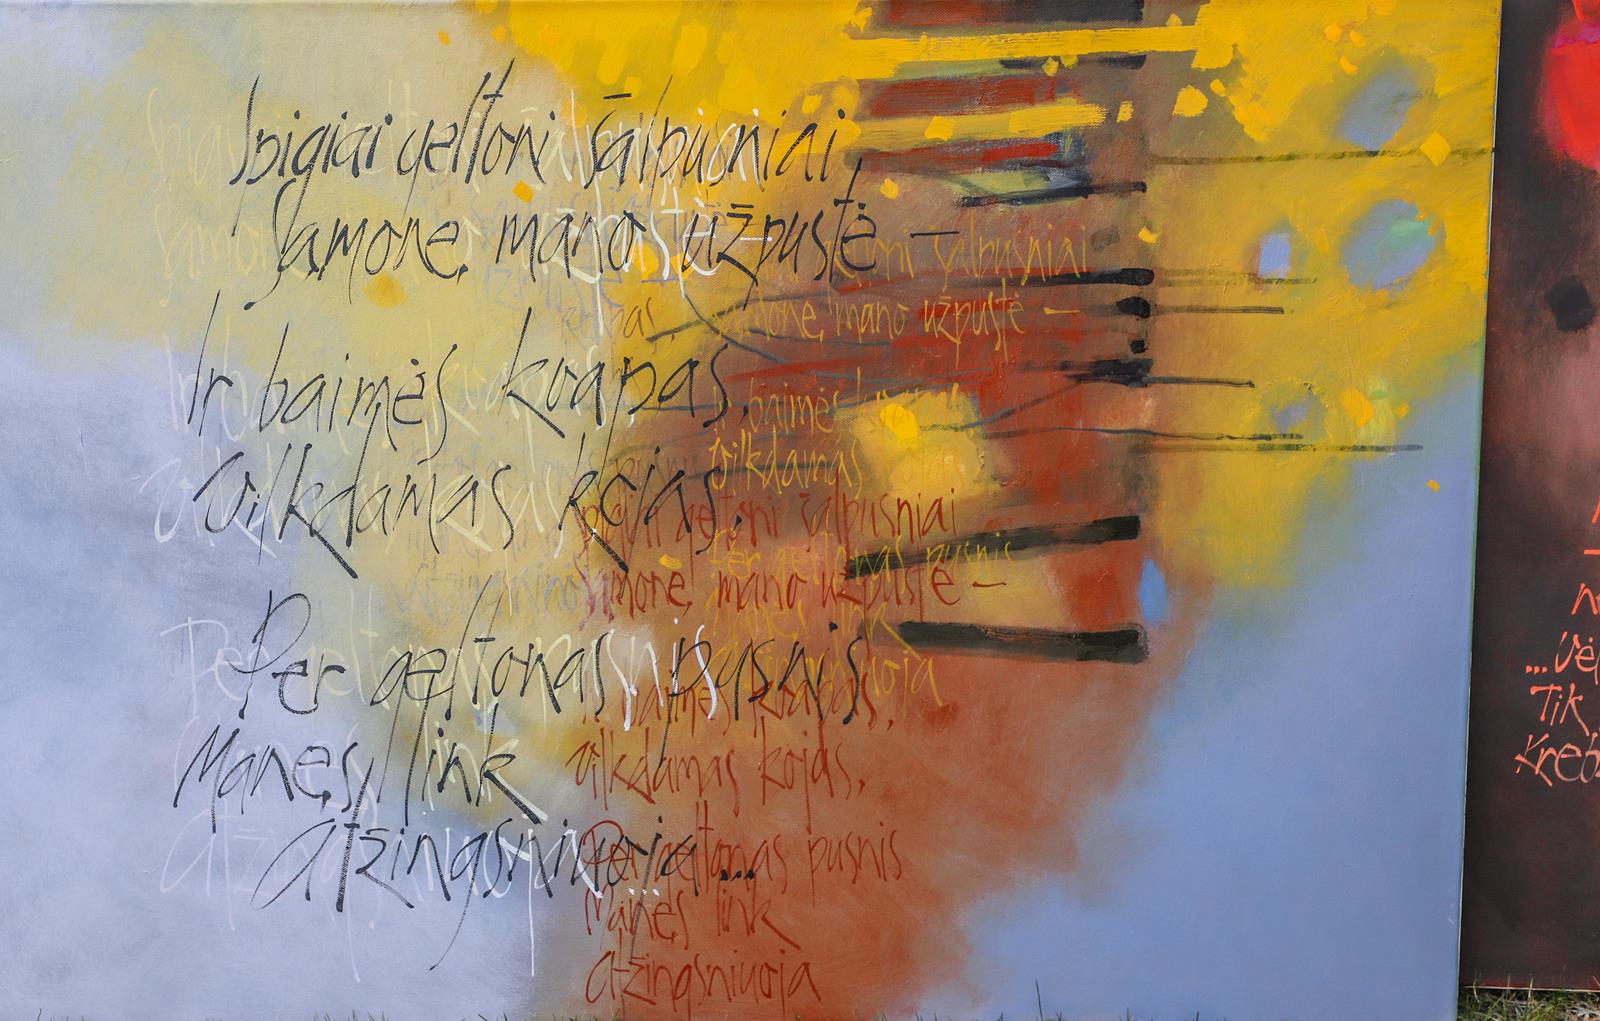 Spigiai geltoni šalpusniai,
Sąmonę mano užpustė –
Ir baimės kvapas,
vilkdamas kojas,
Per geltonas pusnis
Manęs link
Atžingsniuoja...
šalpusniai
mano užpustė –
Ir baimės
vilkdamas
geltoni šalpusniai
Sąmonę mano užpustė –
Per geltonas pusnis
Manęs link
Ir baimės kvapas,
vilkdamas kojas,
Per geltonas pusnis
Manęs link
Atžingsniuoja
Tik